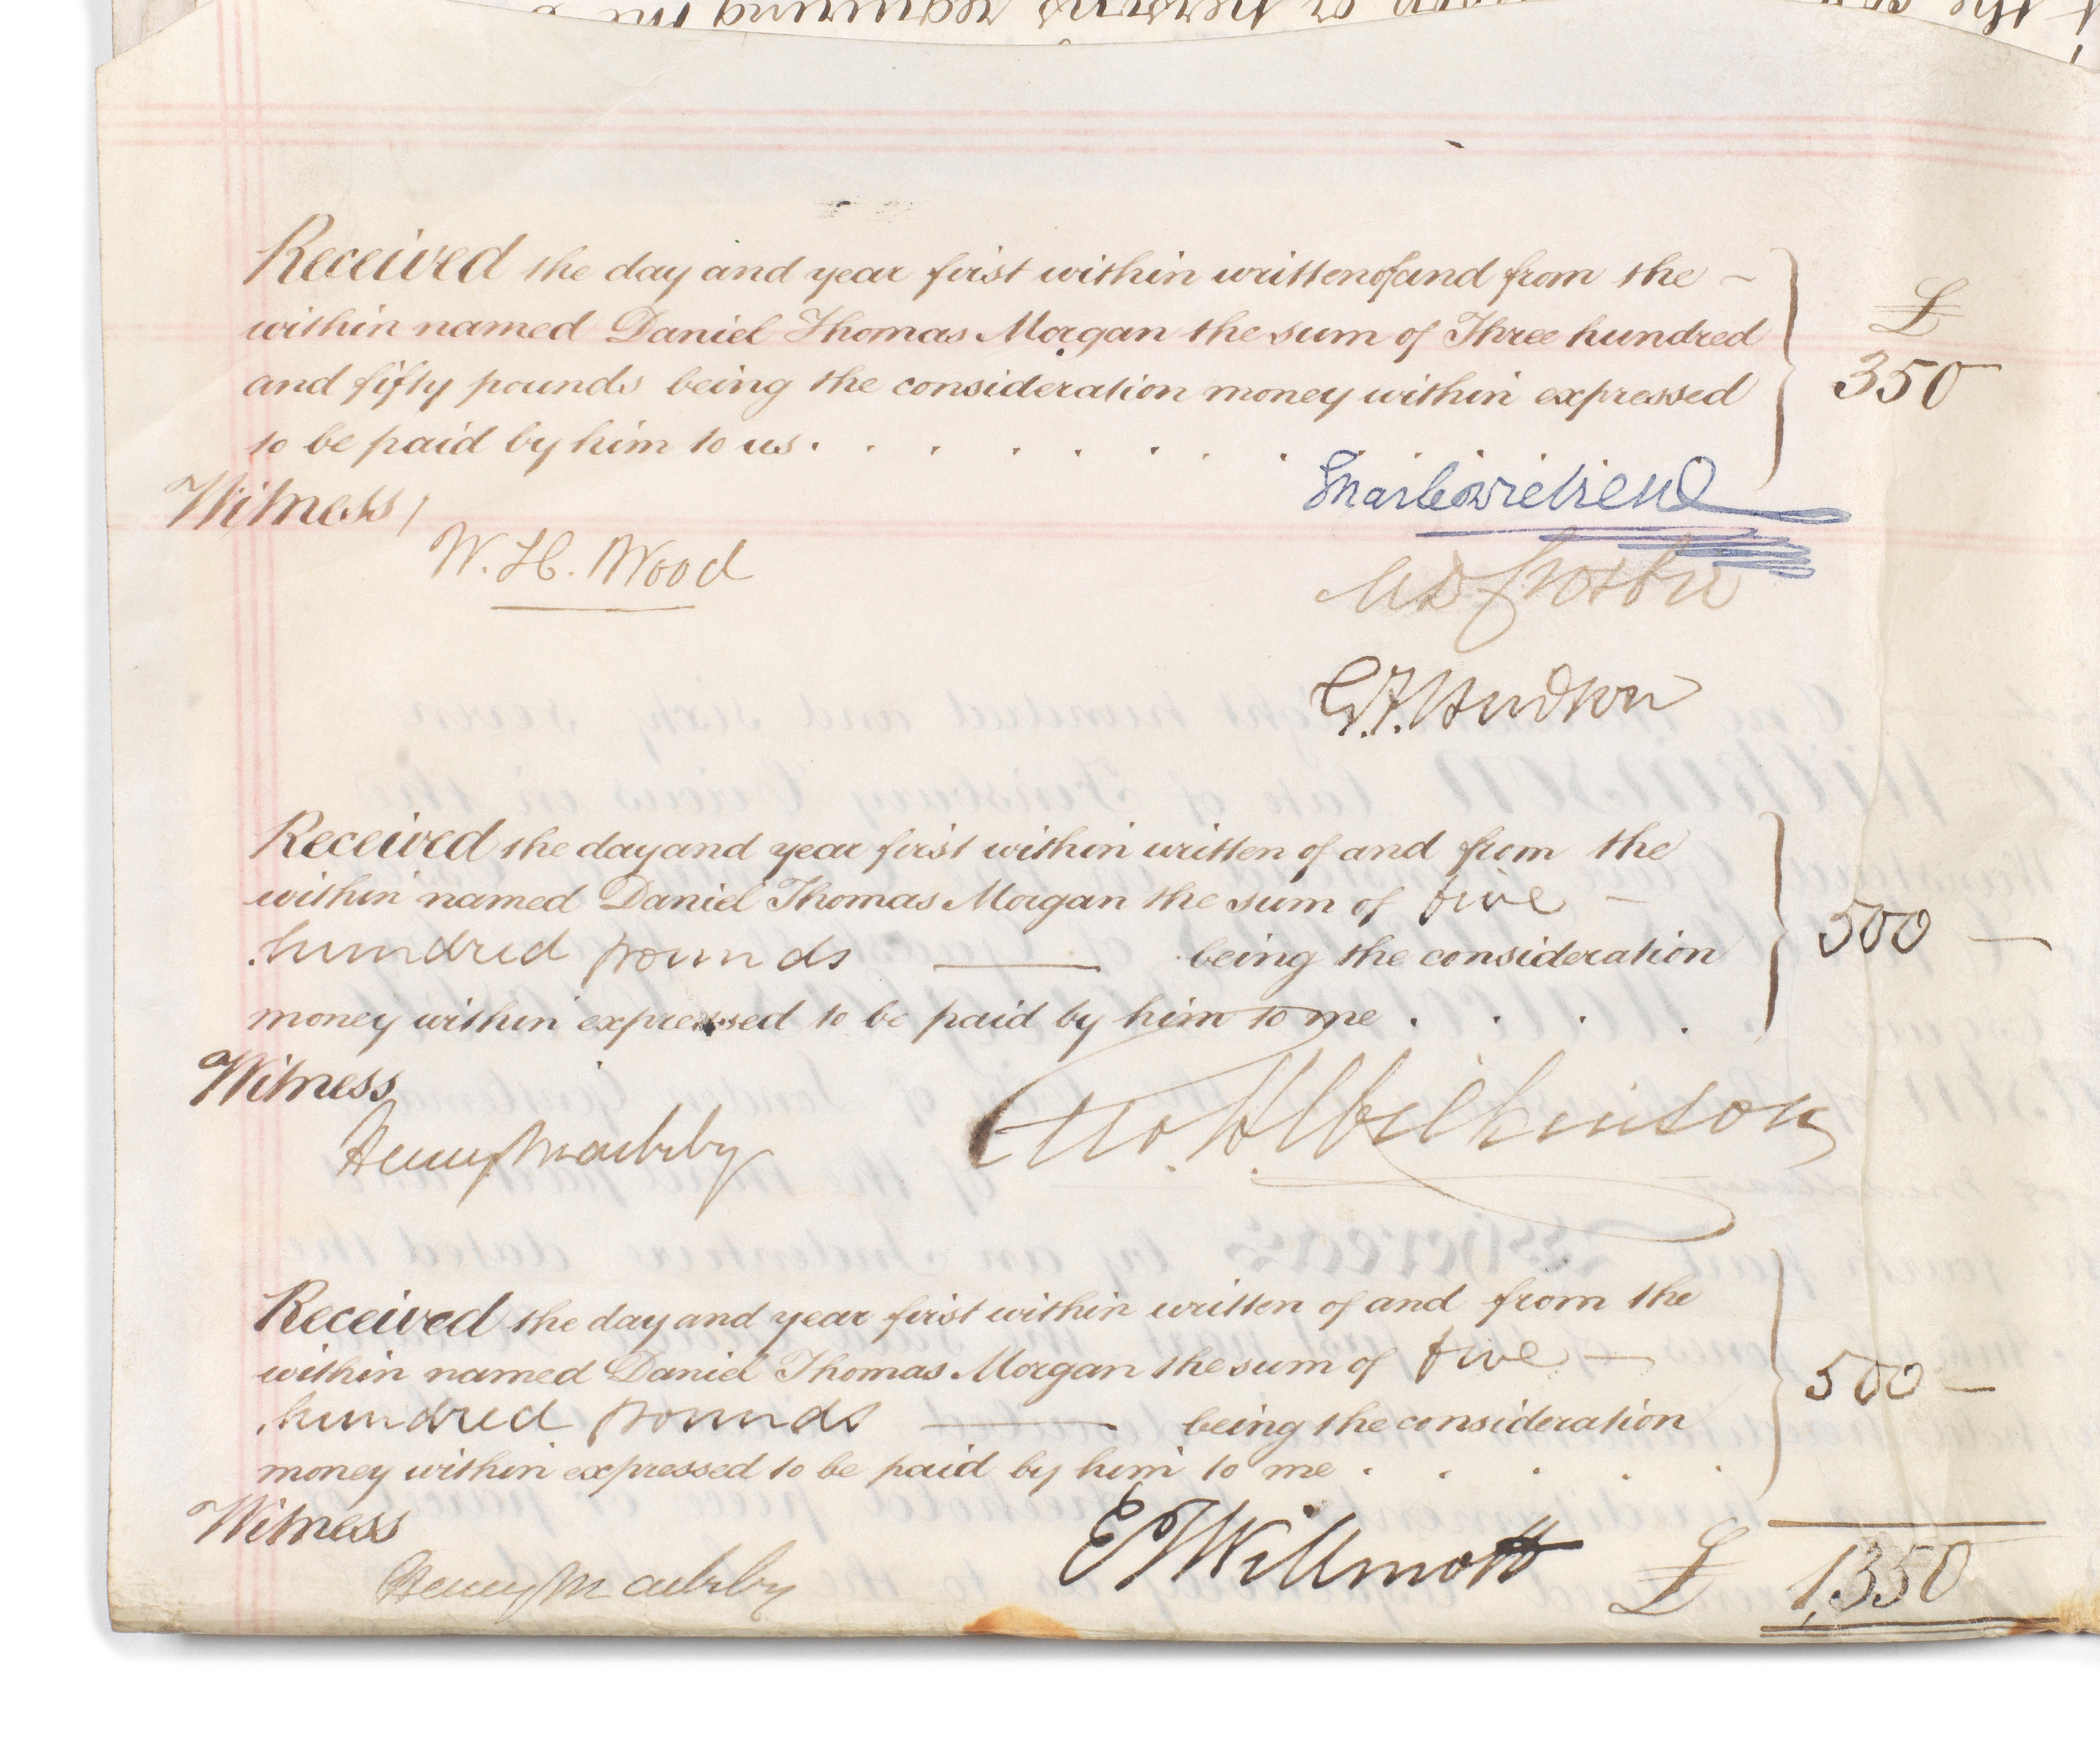 Received the day and year first within written of and from the -
within named Daniel Thomas Morgan the sum of Three hundred
and fifty pounds being the consideration money within expressed
to be paid by him to us . . . . . . . . .
£
350
Witness /
W. H. Wood
G.F. Hudson
Received the day and year first within written of and from the
within named Daniel Thomas Morgan the sum of five -
hundred pounds — being the consideration
money within expressed to be paid by him to me . . . .
500 —
Witness
Henry
Geo. H. Wilkinson
Received the day and year first within written of and from the
within named Daniel Thomas Morgan the sum of five —
hundred pounds — being the consideration
money within expressed to be paid by him to me . . . . .
500 —
Witness
Henry
E Willmott
£ 1,350